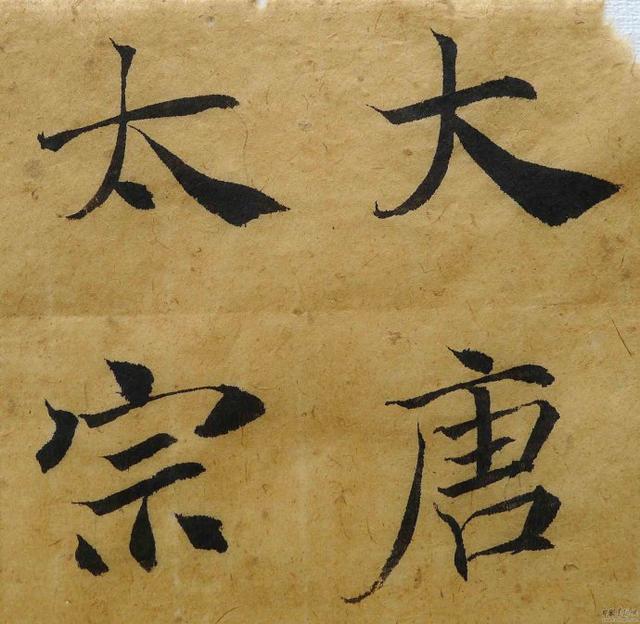 大唐
太宗